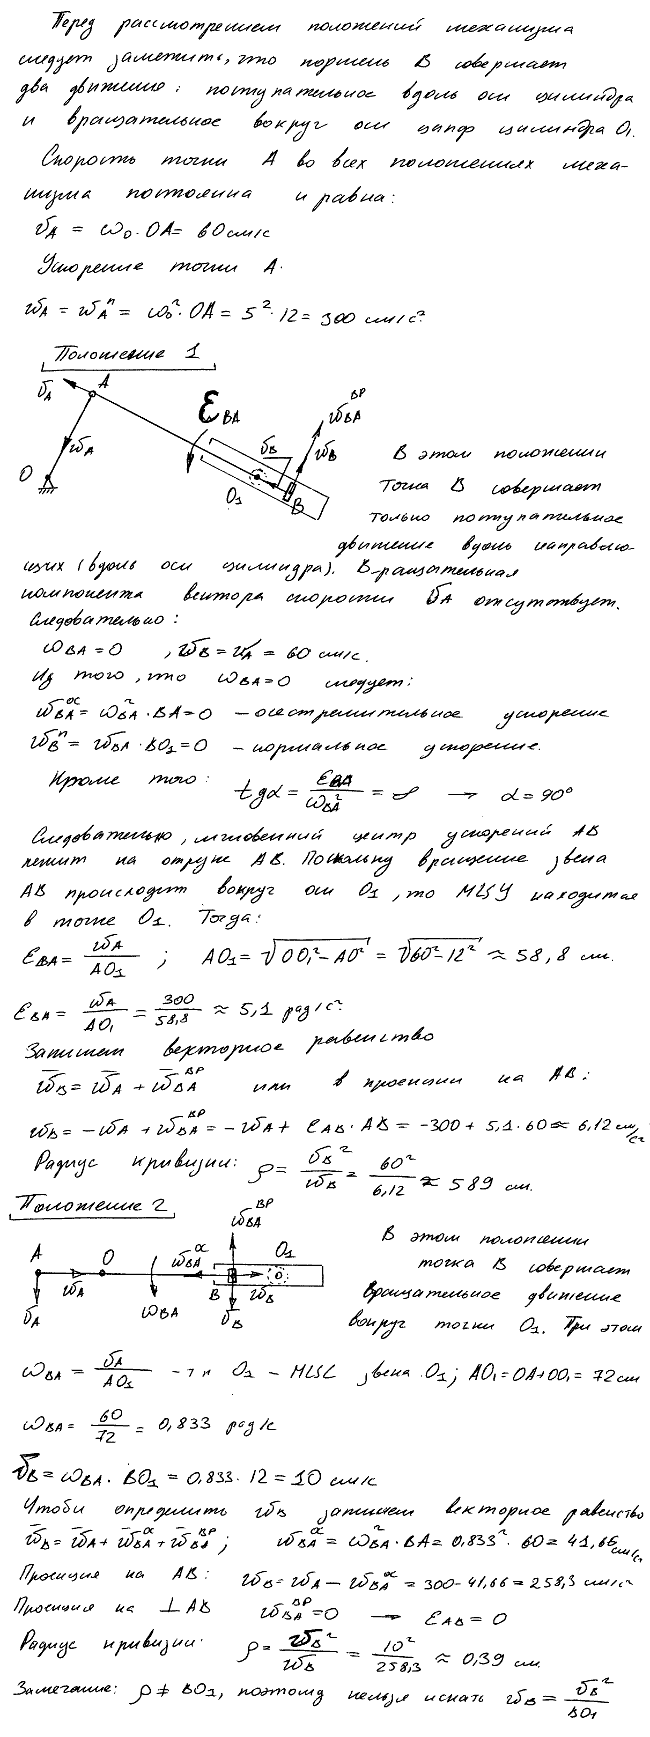 Перед рассмотрением положений механизма
следует заметить, что поршень B совершает
два движение: поступательное вдоль оси цилиндра
и вращательное вокруг оси цапф цилиндра O₁.
Скорость точки A во всех положениях меха-
низма постоянна и равна:
υA = ω₀·OA = 60 см/с
Ускорение точки A.
wA = wAⁿ = ω₀²·OA = 5²·12 = 300 см/с².
Положение 1
υA A εBA wBAᵇᵖ
wA υB wB
O O₁ B
В этом положении
точка B совершает
только поступательное
движение вдоль направляю-
щих (вдоль оси цилиндра). Вращательная
компонента вектора скорости υA отсутствует.
Следовательно:
ωBA = 0 , υB = υA = 60 см/с.
Из того, что ωBA = 0 следует:
wBAᵒᶜ = ωBA²·BA = 0 – осестремительное ускорение
wBⁿ = ωBA·BO₁ = 0 – нормальное ускорение.
Кроме того: tgα = εBA/ωBA² = ∞ → α = 90°
Следовательно, мгновенный центр ускорений AB
лежит на отрузке AB. Поскольку вращение звена
AB происходит вокруг оси O₁, то МЦУ находится
в точке O₁. Тогда:
εBA = wA/AO₁ ; AO₁ = √(OO₁² - AO²) = √(60² - 12²) ≈ 58,8 см.
εBA = wA/AO₁ = 300/58,8 ≈ 5,1 рад/с²
Запишем векторное равенство
w̄B = w̄A + w̄BAᵇᵖ или в проекции на AB:
wB = -wA + wBAᵇᵖ = -wA + εAB·AB = -300 + 5,1·60 ≈ 6,12 см/с²
Радиус кривизни: ρ = υB²/wB = 60²/6,12 ≈ 589 см.
Положение 2
wBAᵇᵖ
A O wBAᵒᶜ O₁
wA B wB
υA ωBA υB
В этом положении
точка B совершает
вращательное движение
вокруг точки O₁. При этом
ωBA = υA/AO₁ – т.к O₁ – МЦС звена O₁; AO₁ = OA + OO₁ = 72 см
ωBA = 60/72 = 0,833 рад/с
υB = ωBA·BO₁ = 0,833·12 = 10 см/с
Чтоби определить wB запишем векторное равенство
w̄B = w̄A + w̄BAᵒᶜ + w̄BAᵇᵖ; wBAᵒᶜ = ωBA²·BA = 0,833²·60 = 41,66 см/с²
Проекция на AB: wB = wA - wBAᵒᶜ = 300 - 41,66 = 258,3 см/с²
Проекция на ⊥AB wBAᵇᵖ = 0 → εAB = 0
Радиус кривизни: ρ = υB²/wB = 10²/258,3 ≈ 0,39 см.
Замечание: ρ ≠ BO₁, поэтому нельзя искать wB = υB²/BO₁